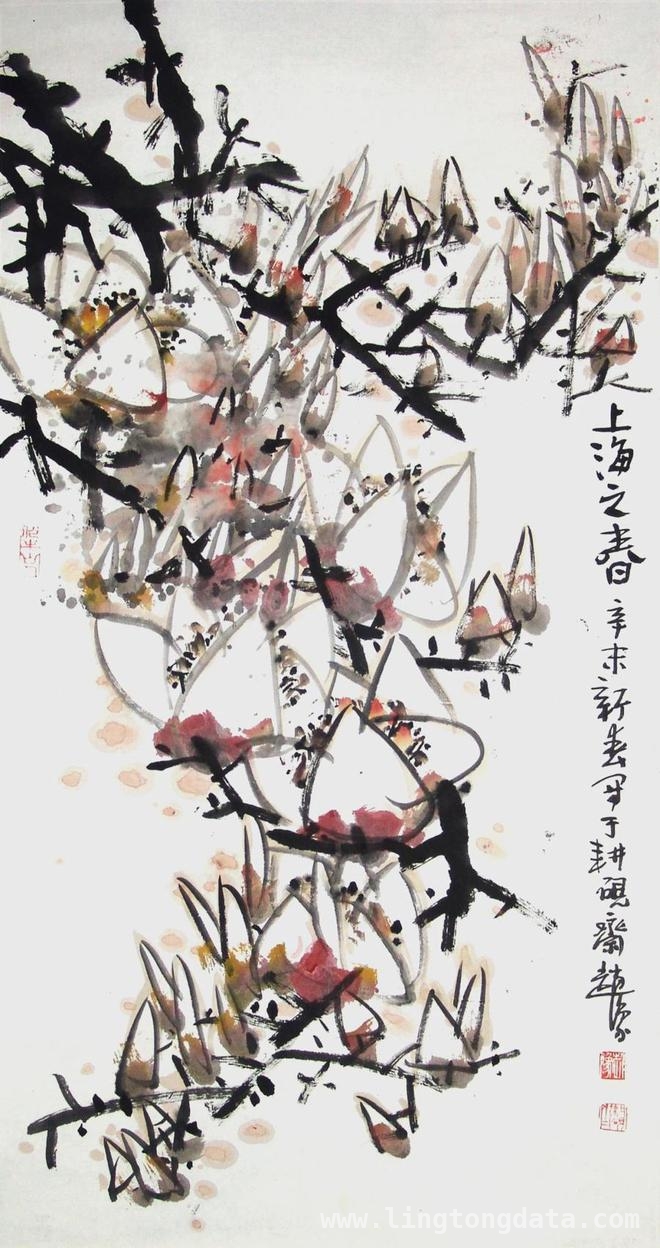 上海之春
辛未新春写于耕砚斋赵
www.lingtongdata.com